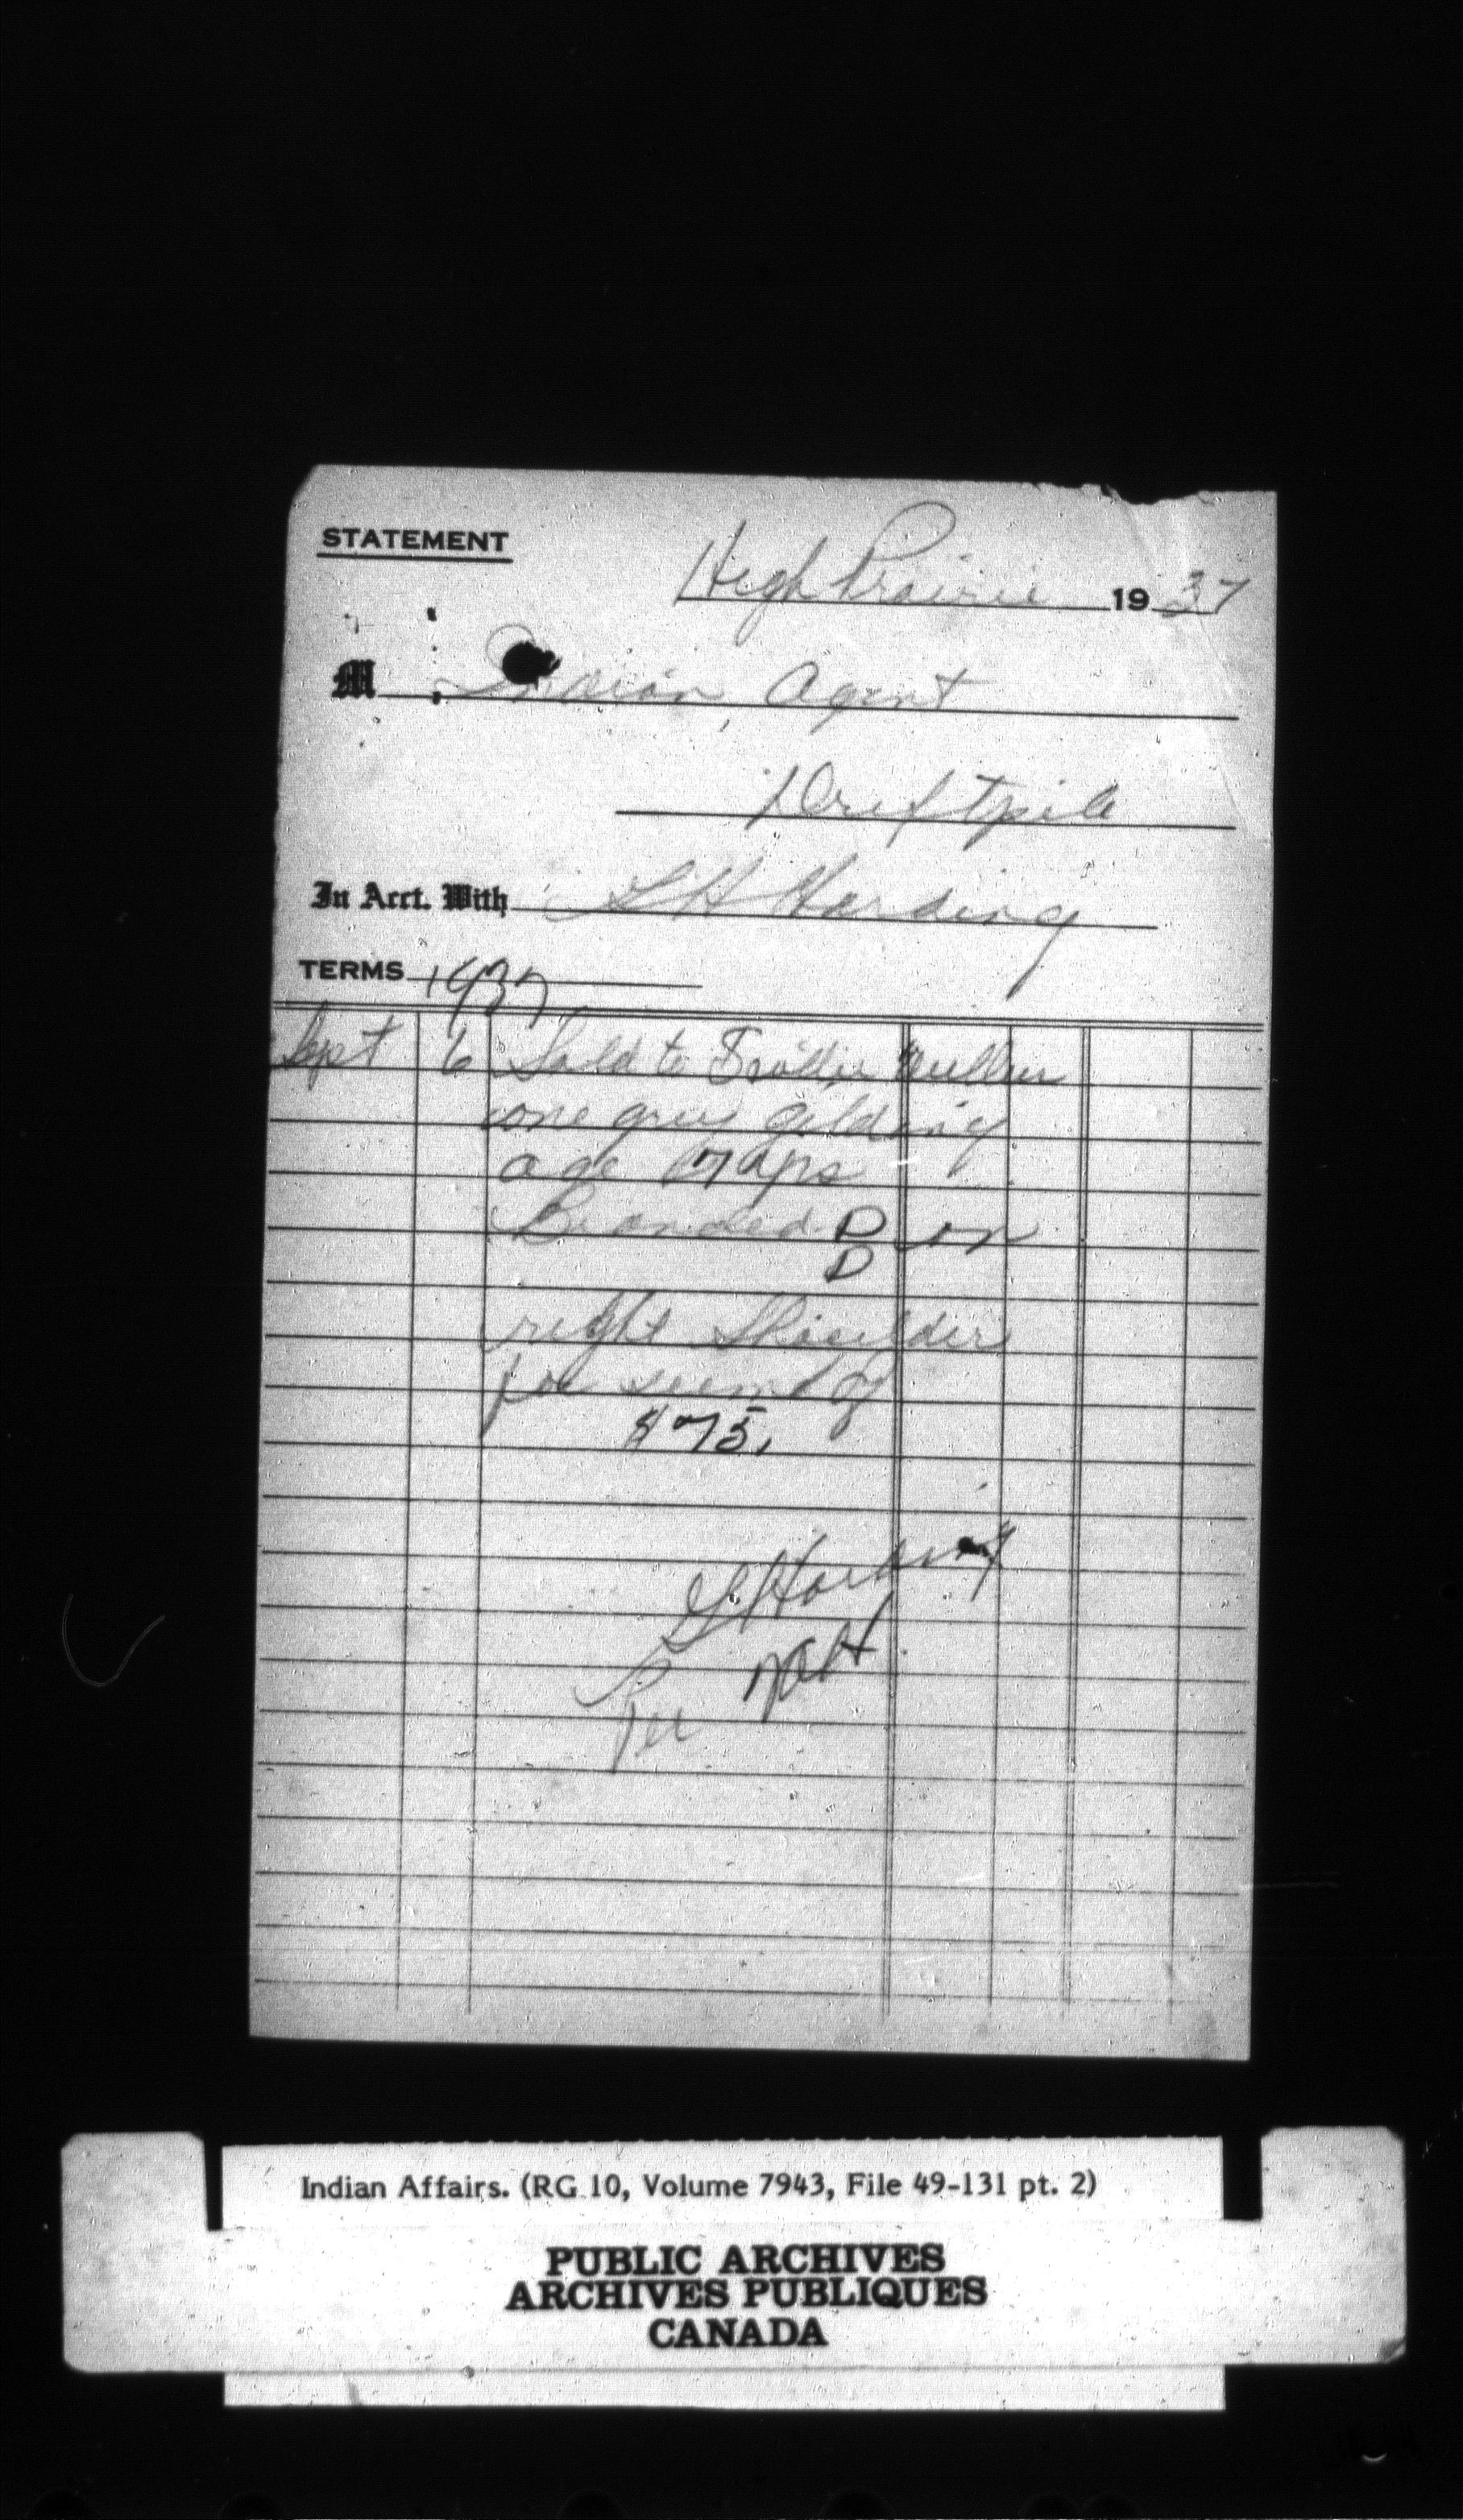 STATEMENT
High Prairie 1937
M Indian Agent
Driftpile
In Acct. With S H Harding
TERMS 1937
Sept 6 Sold to
one grey gelding
age 7 yrs
Branded D on
D
right Shoulder
for
$75.
Harding
Per
Indian Affairs. (RG 10, Volume 7943, File 49-131 pt. 2)
PUBLIC ARCHIVES
ARCHIVES PUBLIQUES
CANADA